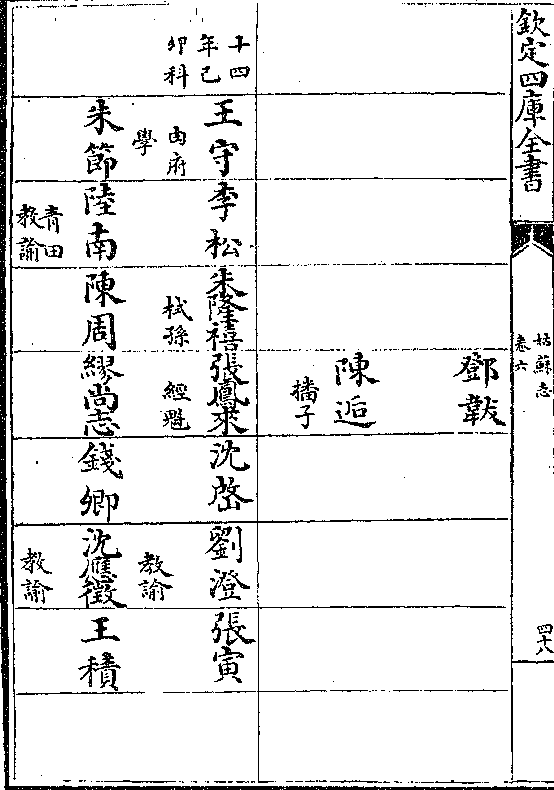 欽定四庫全書
姑蘇志
卷六
四十八
鄧韍
陳逅
播子
十四
年己
卯科
王守 李松 朱隆禧 張鳳來 沈啓 劉澄 張寅
由府
學
栻孫
經魁
教諭
朱節 陸南 陳周 繆尚志 錢卿 沈應徵 王積
青田
教諭
教諭